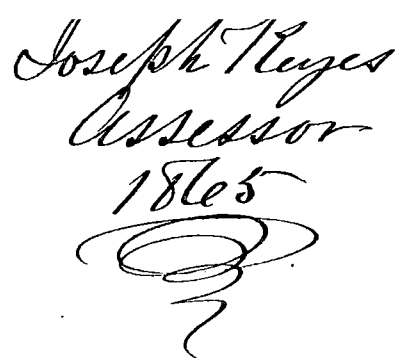 Joseph Keyes
Assessor
1865